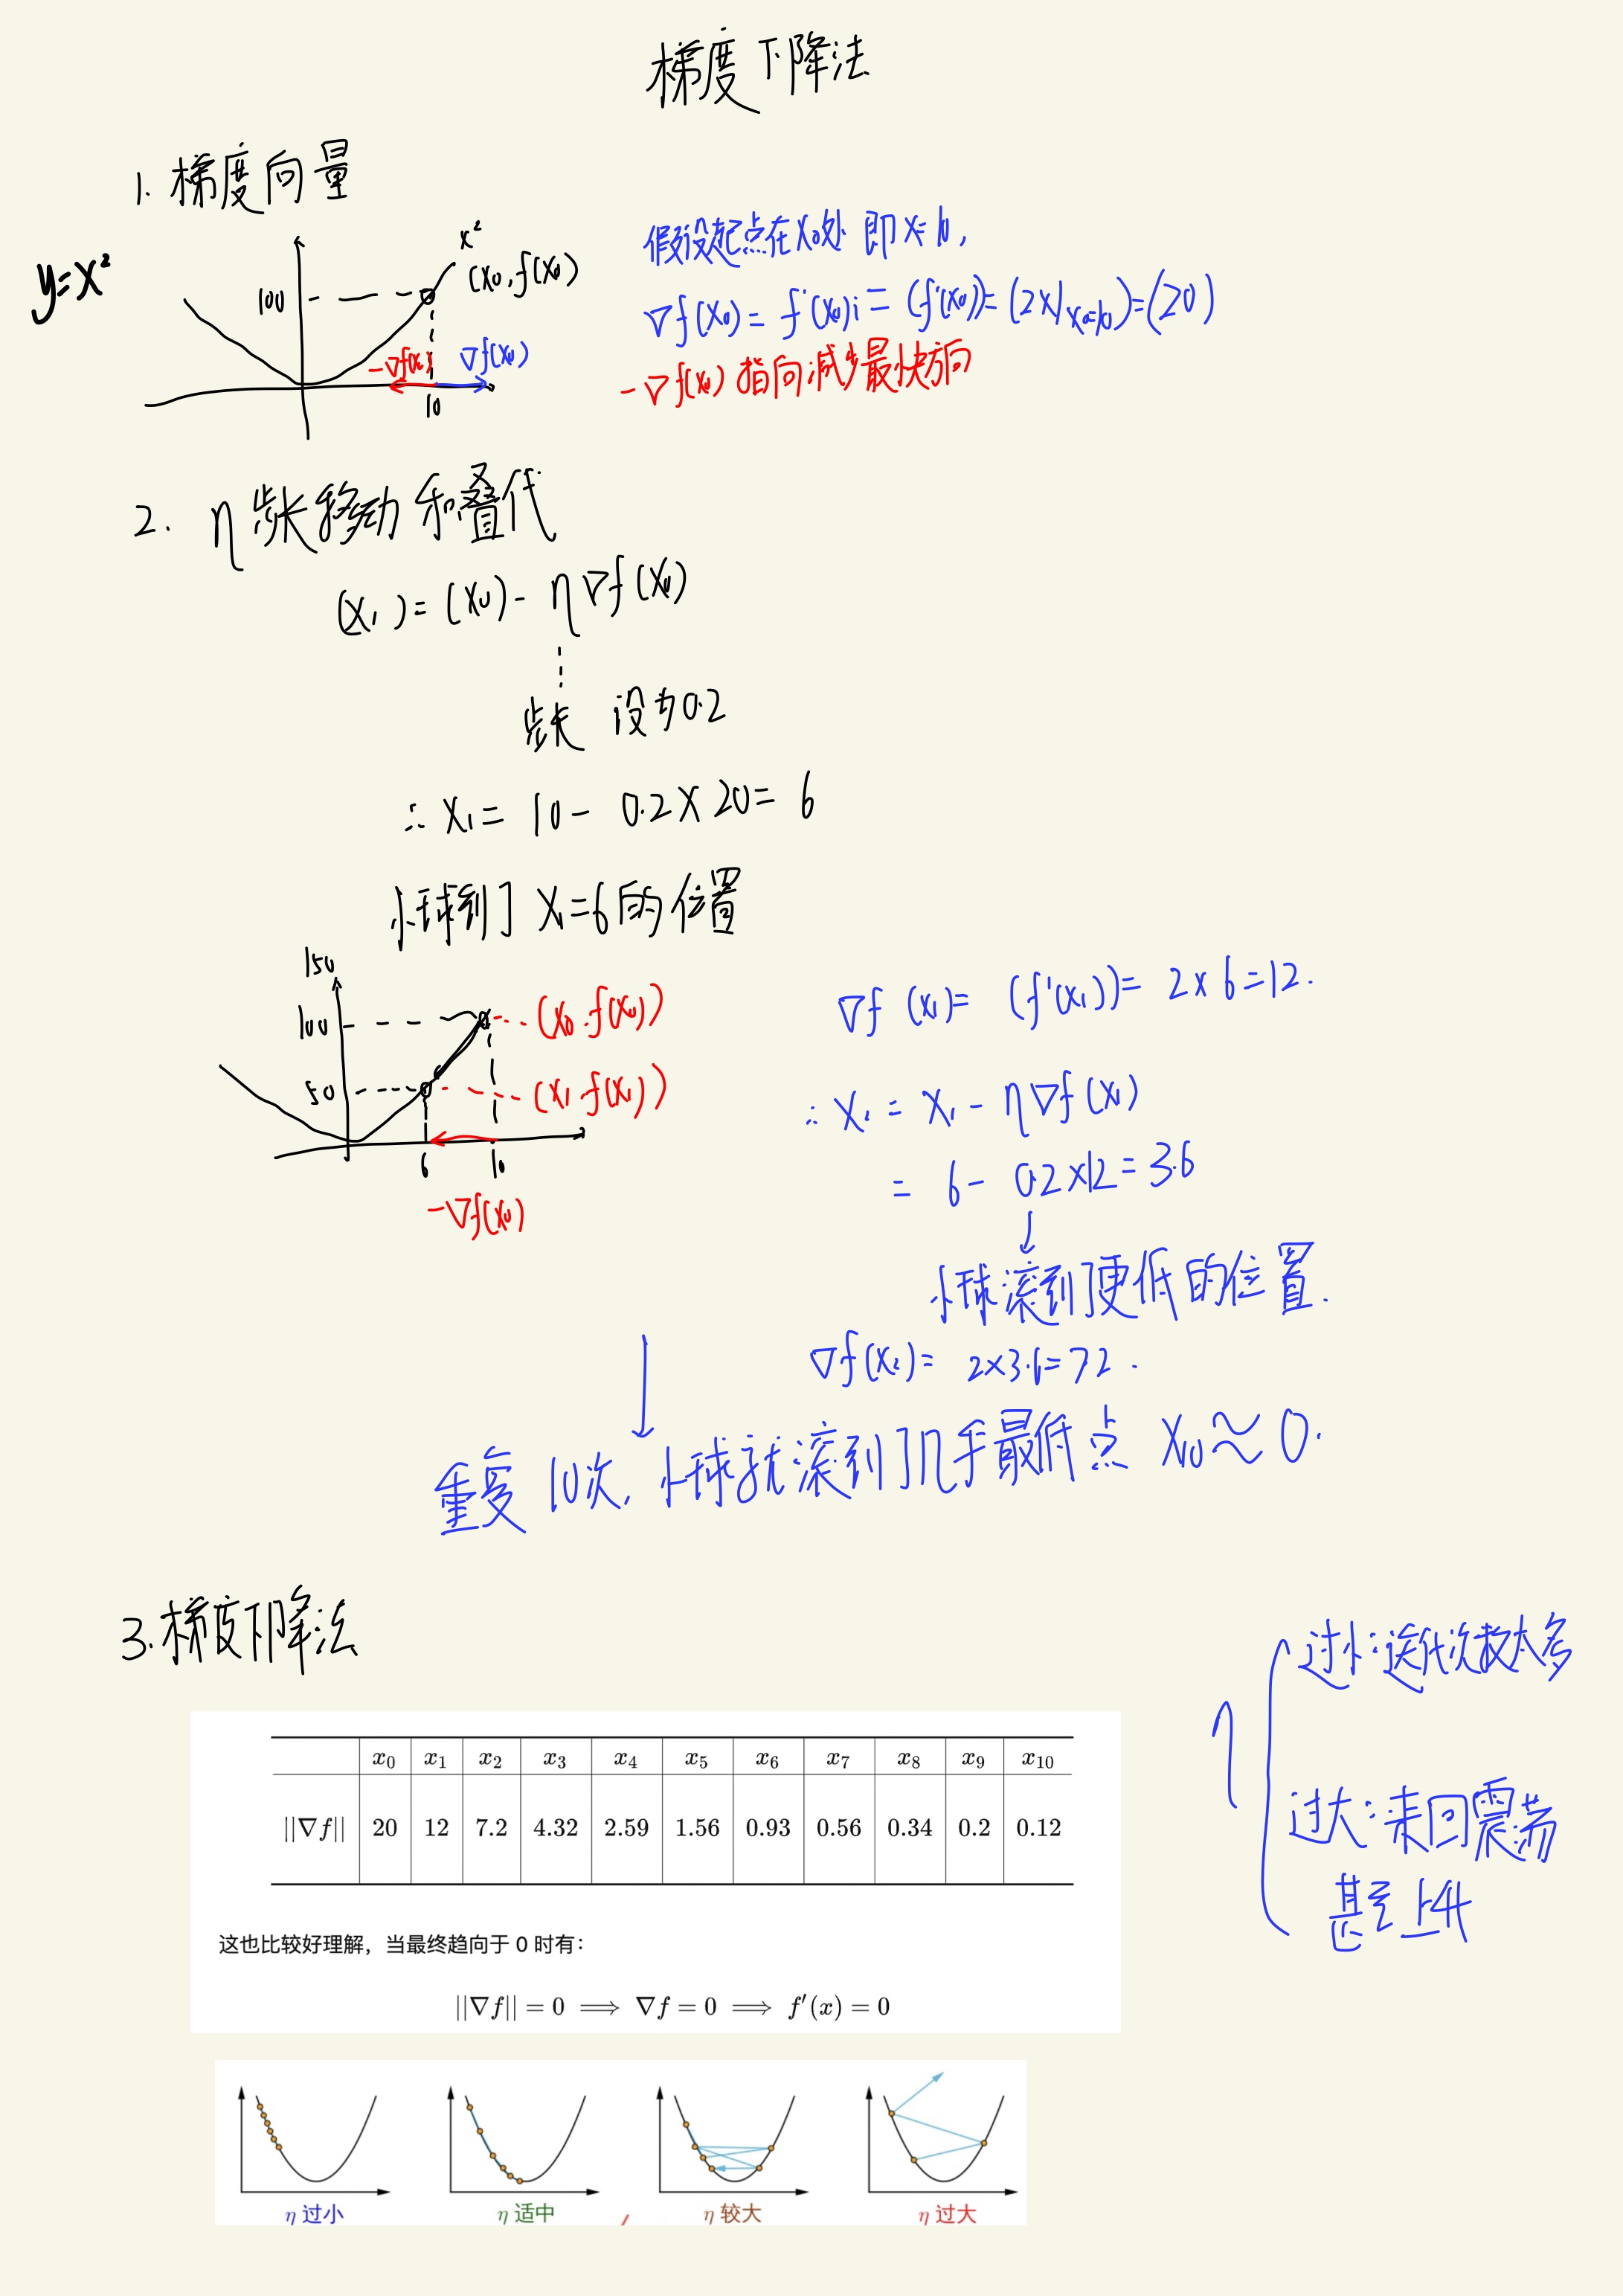 梯度下降法
1. 梯度向量
y=x²
x²
(x₀,f(x₀))
100
-∇f(x₀)
∇f(x₀)
10
假设起点在x₀处 即x=10,
∇f(x₀)= f'(x₀)i = (f'(x₀))=(2x|x₀=10)=(20)
-∇f(x₀) 指向减少最快方向
2. η步长移动和叠代
(x₁)=(x₀)-η∇f(x₀)
步长 设为0.2
∴ x₁= 10- 0.2×20= 6
小球到了 x₁=6的位置
150
100
50
(x₀.f(x₀))
(x₁.f(x₁))
6
10
-∇f(x₀)
∇f (x₁)= (f'(x₁))= 2×6=12.
∴ x₂ = x₁ - η∇f(x₁)
= 6- 0.2×12=3.6
小球滚到了更低的位置.
∇f(x₂)= 2×3.6=7.2.
重复10次, 小球就滚到了几乎最低点 x₁₀≈0.
3.梯度下降法
x₀ x₁ x₂ x₃ x₄ x₅ x₆ x₇ x₈ x₉ x₁₀
||∇f|| 20 12 7.2 4.32 2.59 1.56 0.93 0.56 0.34 0.2 0.12
这也比较好理解，当最终趋向于 0 时有：
||∇f|| = 0 ⟹ ∇f = 0 ⟹ f′(x) = 0
η
过小:迭代次数太多
过大:来回震荡
甚至上升
η 过小
η 适中
η 较大
η 过大